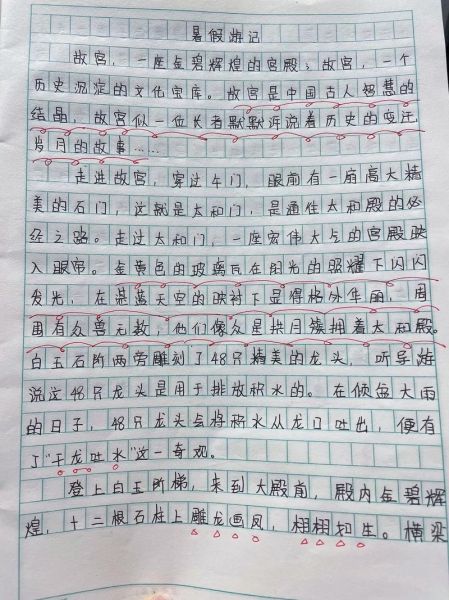 暑假游记
故宫，一座金碧辉煌的宫殿；故宫，一个
历史沉淀的文化宝库。故宫是中国古人智慧的
结晶，故宫似一位长者默默诉说着历史的变迁，
岁月的故事……
走进故宫，穿过午门，眼前有一扇高大精
美的石门，这就是太和门，是通往太和殿的必
经之路。走过太和门，一座宏伟大气的宫殿映
入眼帘。金黄色的玻璃瓦在阳光的照耀下闪闪
发光，在蓝蓝天空的映衬下显得格外华丽，周
围有众兽无数，他们像众星拱月簇拥着太和殿。
白玉石阶两旁雕刻了48只精美的龙头，听导游
说这48只龙头是用于排放积水的。在倾盆大雨
的日子，48只龙头会将积水从龙口吐出，便有
了“千龙吐水”这一奇观。
登上白玉阶梯，来到大殿前，殿内金碧辉
煌，十二根石柱上雕龙画凤，栩栩如生。横梁